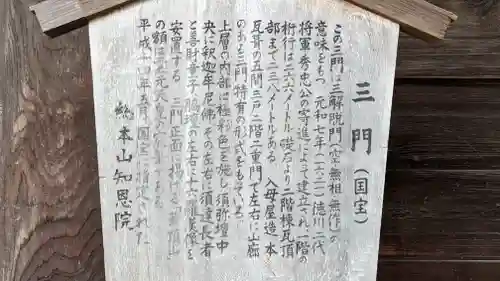 三門（国宝）
この三門は三解脱門（空 無相 無作）の
意味をもつ 元和七年（一六二一）徳川二代
将軍秀忠公の寄進によって建立され 一階の
桁行は二六六メートル 礎石より二階棟瓦頂
部まで二三八メートルある 入母屋造 本
瓦葺の五間三戸二階二重門で左右に山廊
のある三門特有の形式をもっている
上層の内部は極彩色を施し須弥壇中
央に釈迦牟尼佛 その左右に須達長者
と善財童子 脇壇の左右に十六羅漢像を
安置する 三門正面に掲げる
の額は霊元天皇 である
平成十四年五月国宝に指定された
総本山知恩院